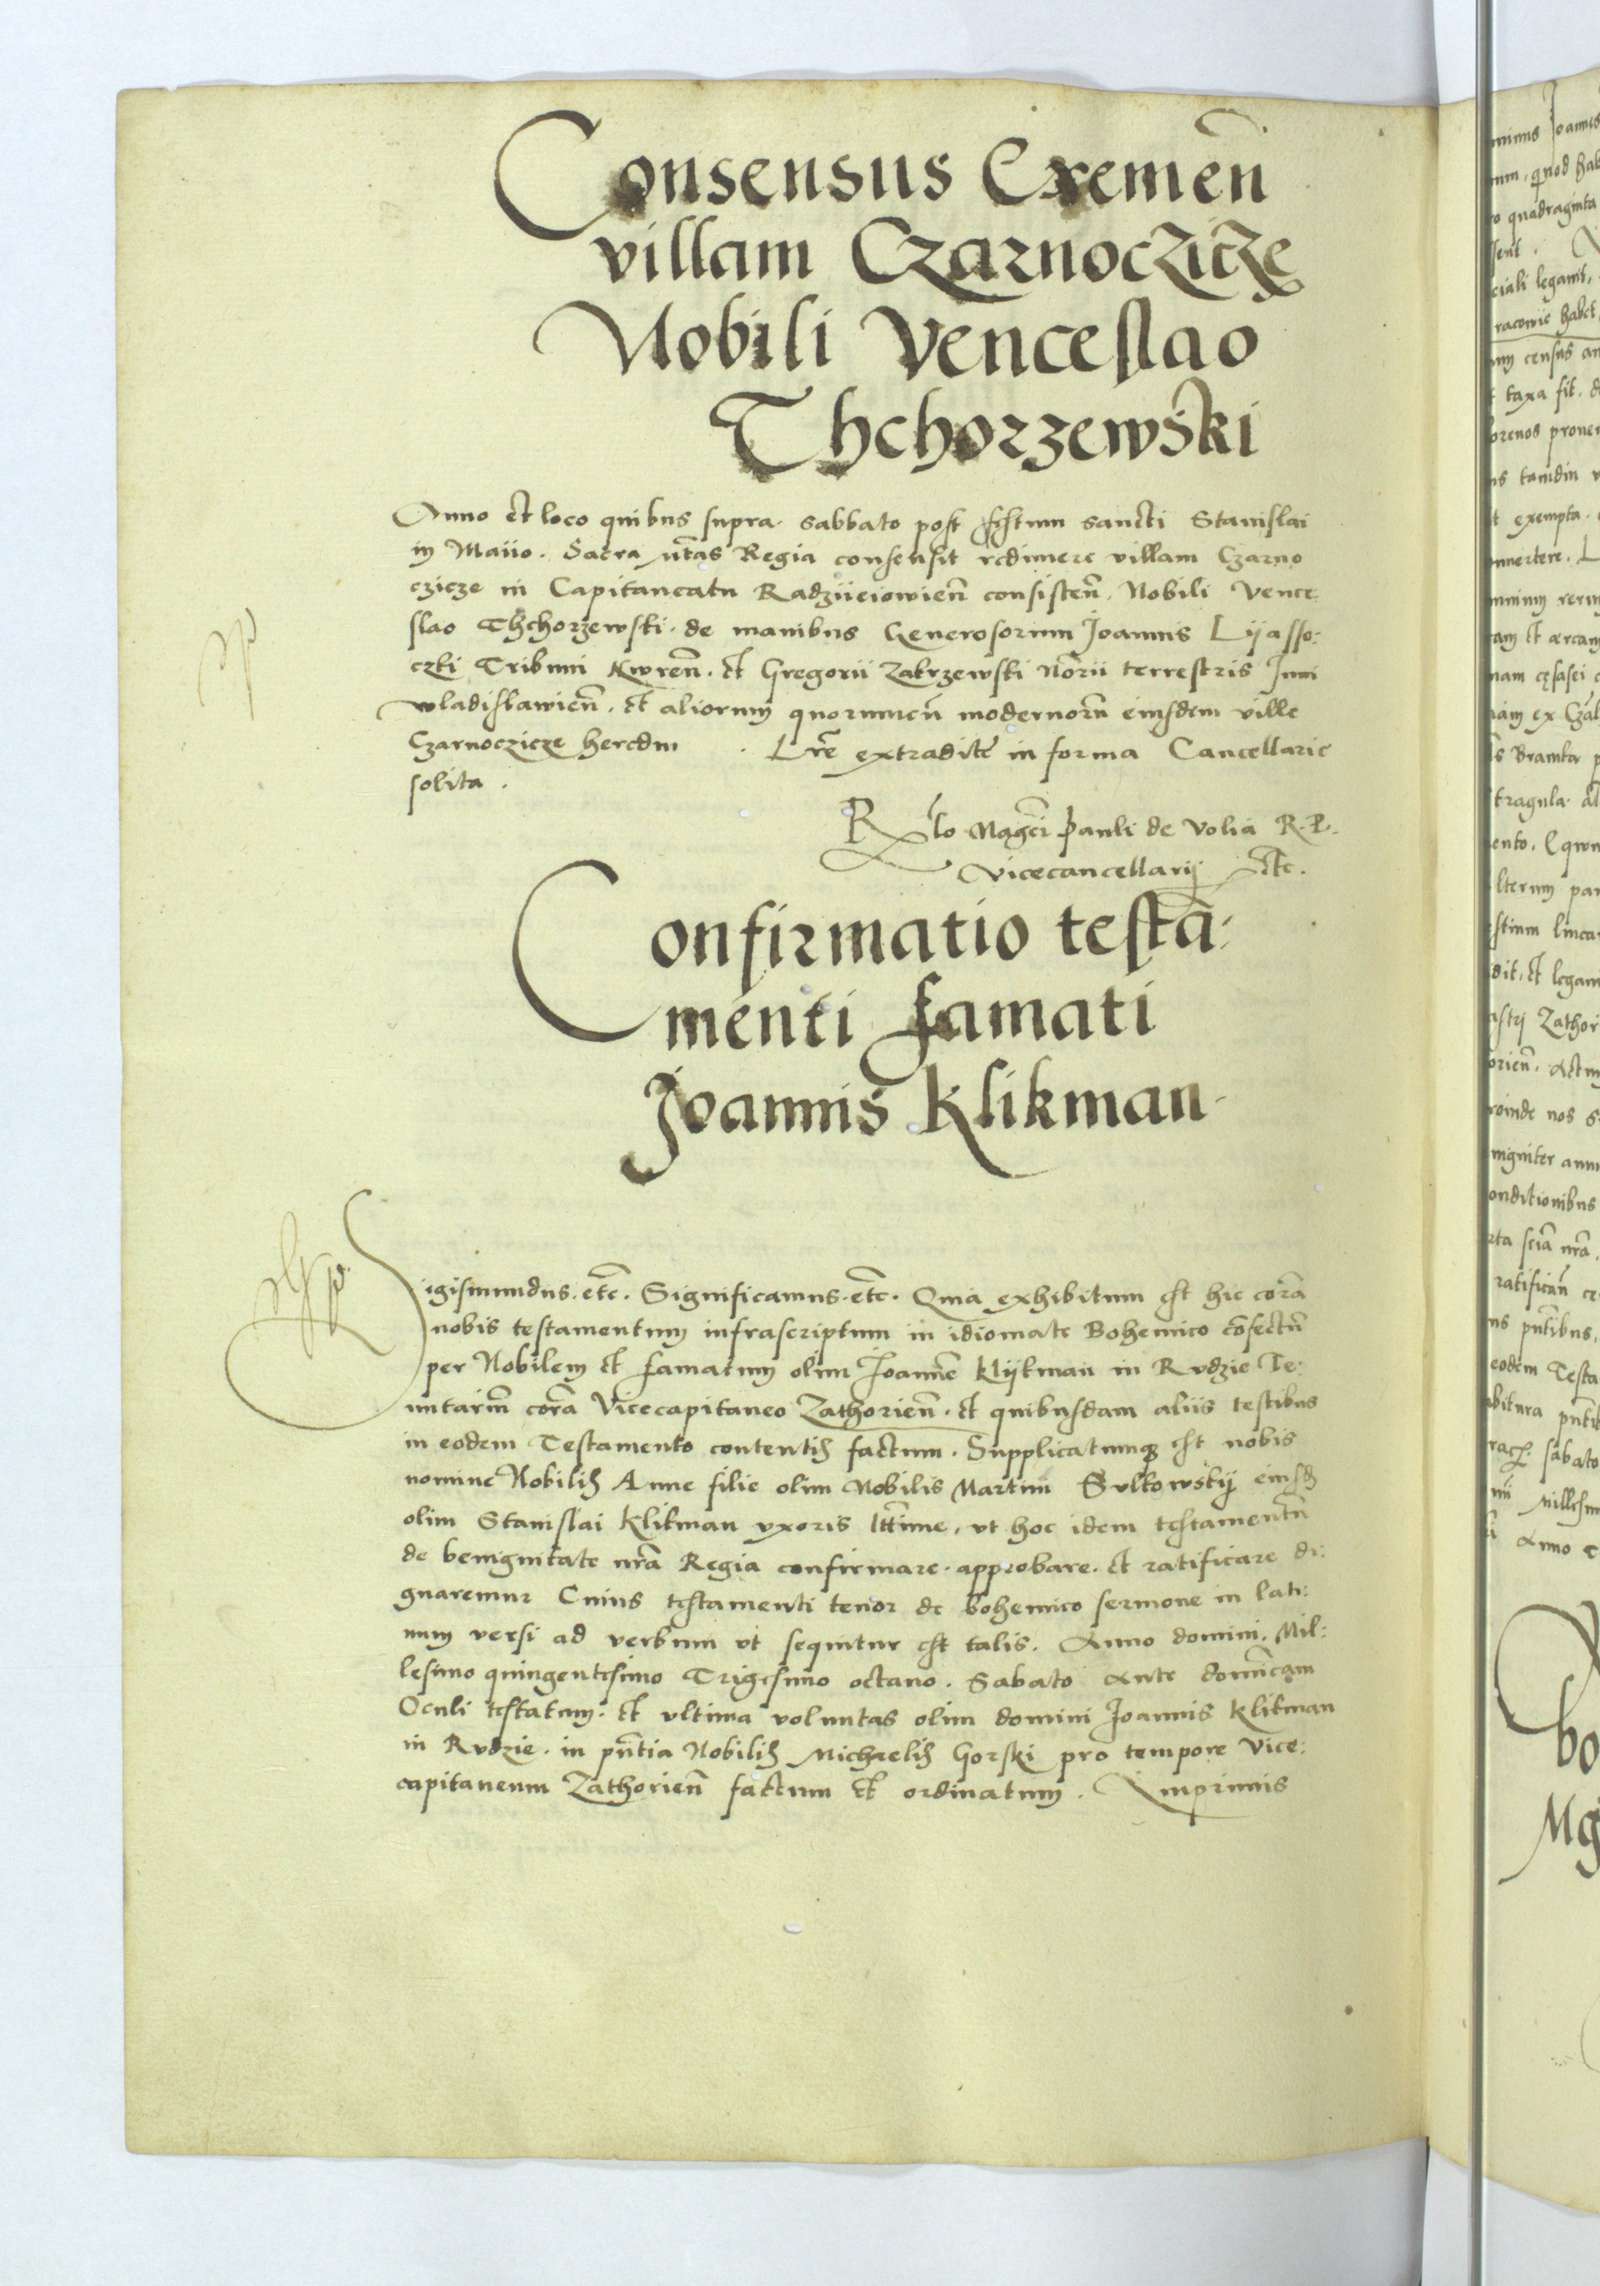 Consensus Exemeñ
villam Czarnoczicze
Nobili Venceslao
Thchorzewski
Anno et loco quibus supra. sabbato post festum sancti Stanislai
in Maiio. Sacra mtas Regia consensit redimere villam Czarno
czicze in Capitaneatu Radzijeiowieñ consisteñ. Nobili Vence
slao Thchorzewski. de manibus Generosorum Joannis Lijasso:
czki Tribuni Kwreñ. et Gregorii Zakrzewski Norii terrestris Juni
wladislawieñ. et aliorum quorumcũ modernorũ eiusdem ville
Czarnoczicze heredũ. Lre extradite in forma Cancellarie
solita.
Rlo Magci Pauli de Volia R. P.
Vicecancellarij etc.
Confirmatio testa:
menti famati
Joannis Klikman
Sigismundus. etc. Significamus. etc. Quia exhibitum est hic corã
nobis testamentum infrascriptum in idiomate Bohemico cõfectũ
per Nobilem et famatum olim Joannẽ Klijkman in Rvdzie Te:
nutariũ corã Vicecapitaneo Zathorieñ. et quibusdam aliis testibus
in eodem Testamento contentis factum. Supplicatumque est nobis
nomine Nobilis Anne filie olim Nobilis Martini Svlkowskij eiusd
olim Stanislai Klikman vxoris lttime, vt hoc idem testamentũ
de benignitate nrã Regia confirmare. approbare. et ratificare di:
gnaremur Cuius testamenti tenor de bohemico sermone in lati:
num versi ad verbum vt sequitur est talis. Anno domini. Mil:
lesimo quingentesimo Trigesimo octauo. Sabato ante domĩcam
Oculi testatum. et vltima voluntas olim domini Joannis Klikman
in Rvdzie. in pñtia Nobilis Michaelis Gorski pro tempore Vice:
capitaneum Zathorieñ factum et ordinatum. Inprimis